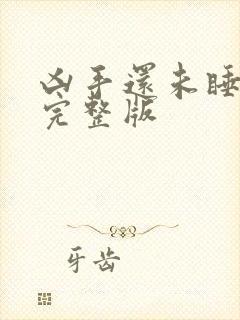 凶手還未睡
完整版
牙齿